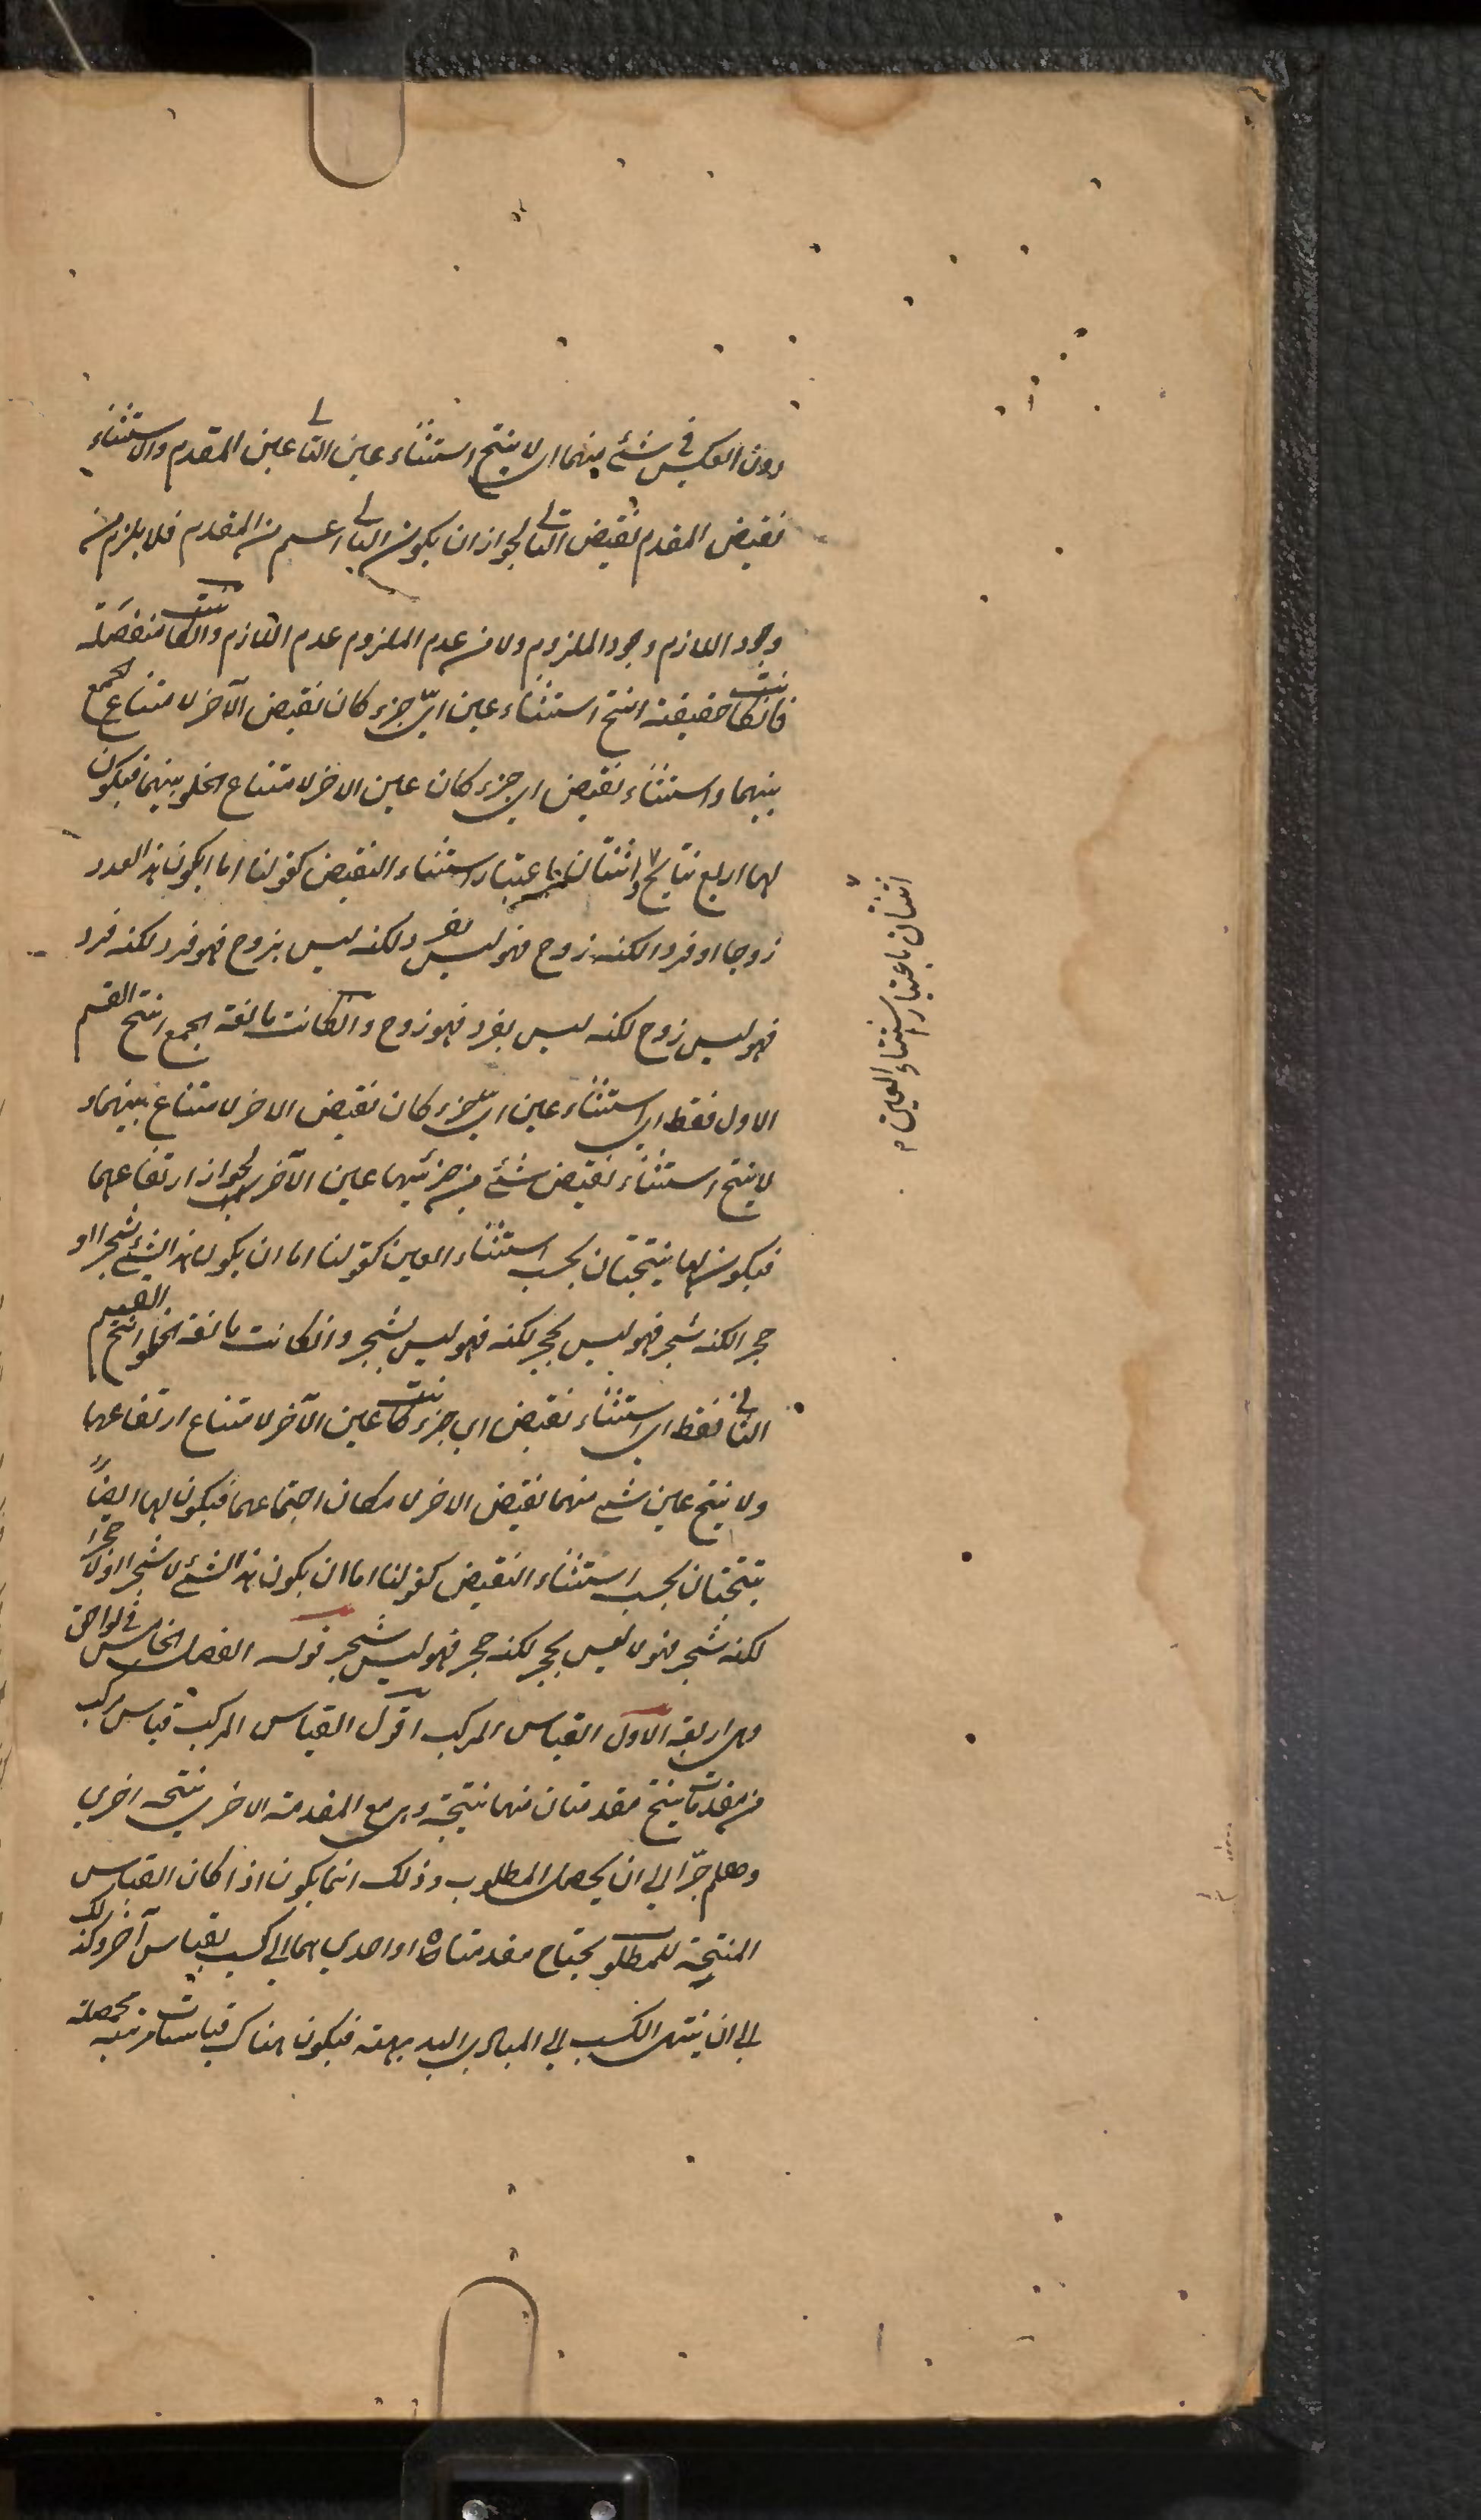 دون العكس في شئ منهما اي لا ينتج استثناء عين التالي عين المقدم والاستثناء
نقيض المقدم نقيض التالي لجواز ان يكون التالي اعم من المقدم فلا يلزم من
وجود اللازم وجود الملزوم ولا من عدم الملزوم عدم اللازم وانكانت منفصلة
فانكانت حقيقية انتج استثناء عين اي جزء كان نقيض الآخر لامتناع الجمع
بينهما واستثناء نقيض اي جزء كان عين الاخر لامتناع الخلو بينهما فيكون
لها اربع نتايج واثنتان باعتبار استثناء النقيض كقولنا اما ايكون هذا العدد
زوجا او فردا لكنه زوج فهو ليس بفرد لكنه ليس بزوج فهو فرد لكنه فرد
فهو ليس زوج لكنه ليس بفرد فهو زوج وانكانت مانعة الجمع انتج القسم
الاول فقط اي استثناء عين اي جزء كان نقيض الاخر لامتناع بينهما و
لا ينتج استثناء نقيض شئ من جزئيهما عين الآخر لجواز ارتفاعهما
فيكون لها نتيجتان بحسب استثناء العين كقولنا اما ان يكون هذا الشئ شجرا او
حجرا لكنه شجر فهو ليس بحجر لكنه فهو ليس بشجر وانكانت مانعة الخلو انتج القسم
الثاني فقط اي استثناء نقيض اي جزء كانت عين الآخر لامتناع ارتفاعهما
ولا ينتج عين شئ منهما نقيض الاخر لامكان اجتماعهما فيكون لها ايضاً
نتيجتان بحسب استثناء النقيض كقولنا اما ان يكون هذا الشئ لا شجرا اولا حجرا
لكنه شجر فهو لا ليس بحجر لكنه حجر فهو ليس شجر قوله الفصل الخامس في لواحق
وهي اربعة الاول القياس المركب اقول القياس المركب قياس مركب
من مقدمات ينتج مقدمتان منها نتيجة وهي مع المقدمة الاخرى نتيجة اخري
وهلم جرّا الي ان يحصل المطلوب وذلك انما يكون اذا كان القياس
المنتجة للمطلوب يحتاج مقدمتاه او احديهما الي كسب بقياس آخر وكذلك
الي ان ينتهي الكسب الي المبادي البديهية فيكون هناك قياسات مترتبة محصلة
اثنتان باعتبار استثناء العين م